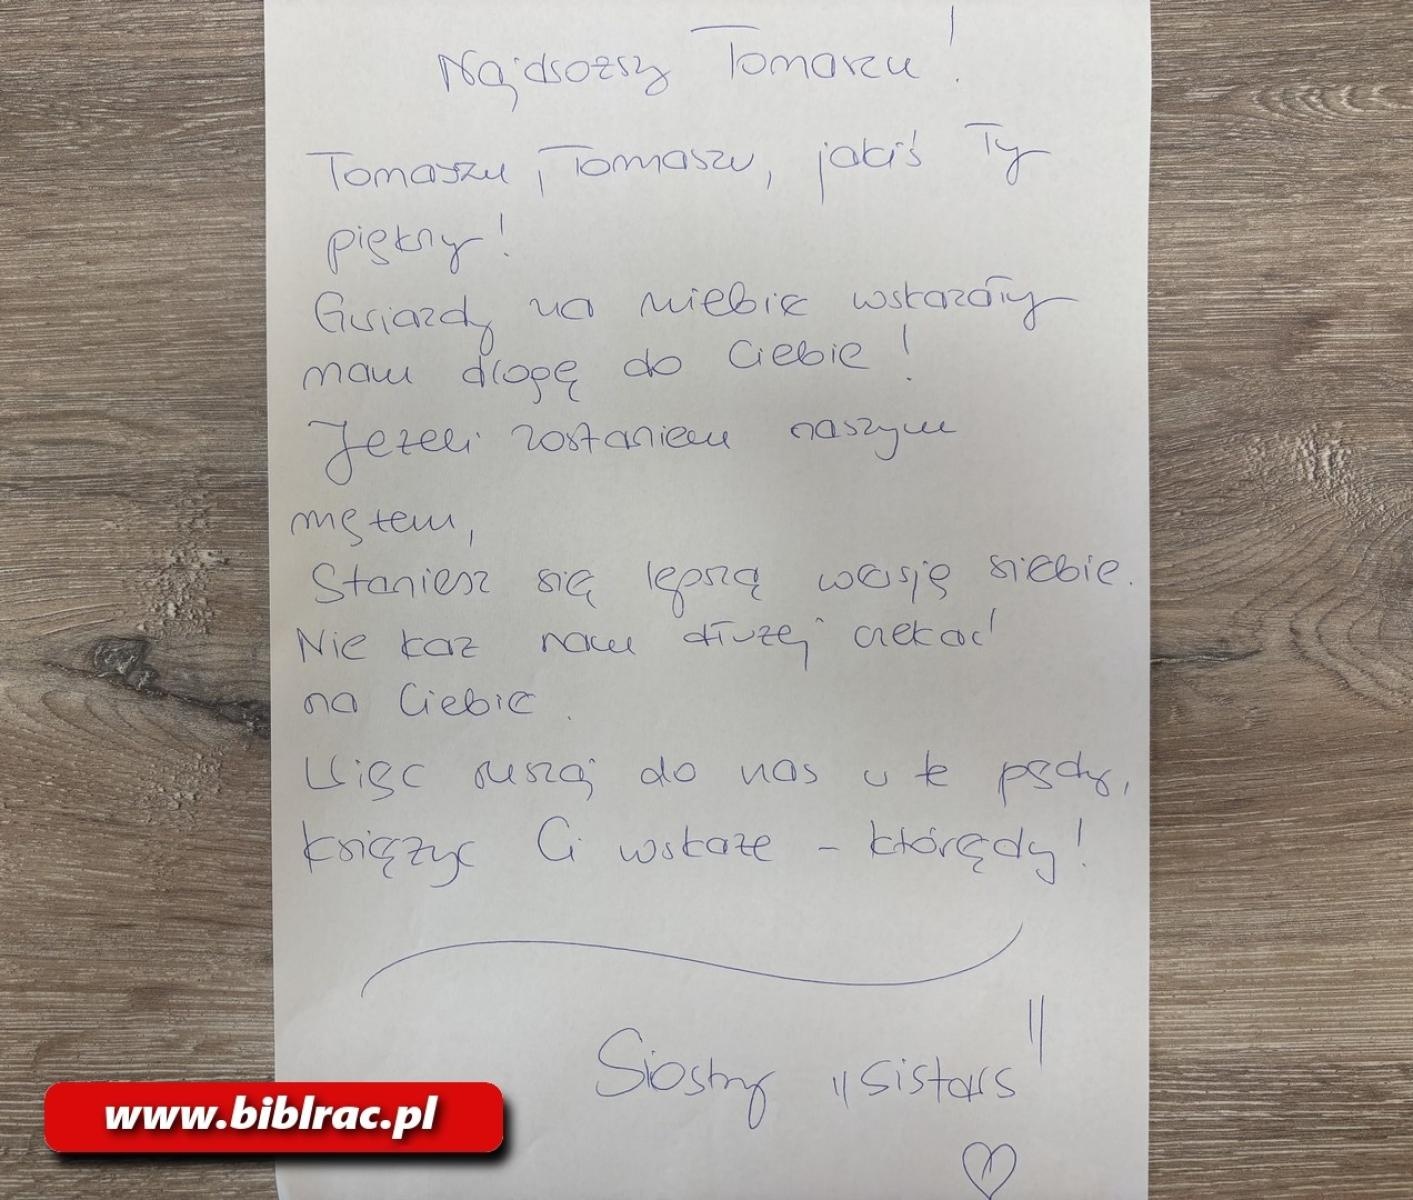 Najdroższy Tomaszu!
Tomaszu, Tomaszu, jakiś Ty
piękny!
Gwiazdy na niebie wskazały
nam drogę do Ciebie!
Jeżeli zostaniem naszym
mężem,
Staniesz się lepszą wersję siebie.
Nie każ nam dłużej czekać
na Ciebie.
Więc ruszaj do nas w te pędy,
księżyc Ci wskaże - którędy!
Siostry "Sistars"
www.biblrac.pl